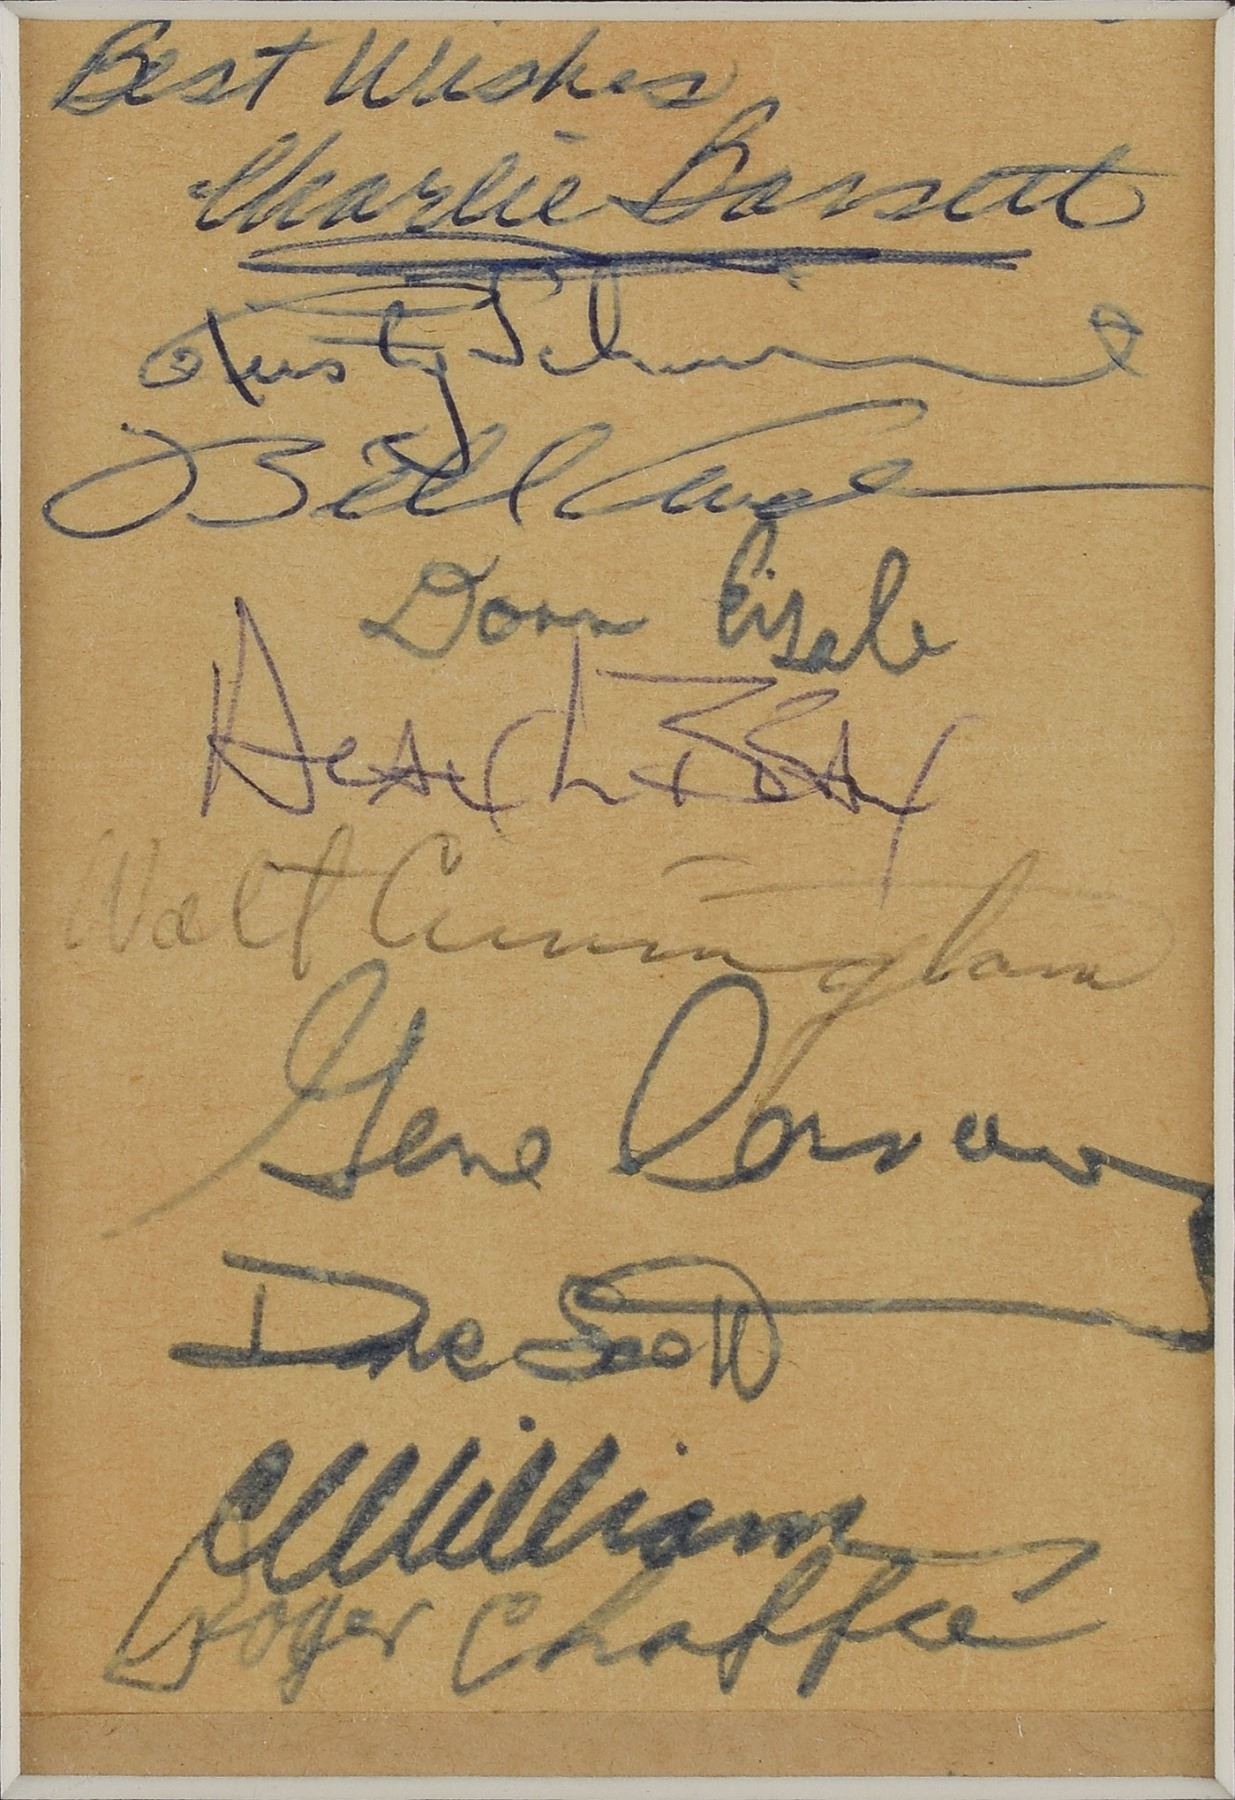 Best Wishes
Charlie Bassett
Rusty Schweickart
Bill Anders
Donn Eisele
Walt Cunningham
Gene Cernan
Dave Scott
CC Williams
Roger Chaffee